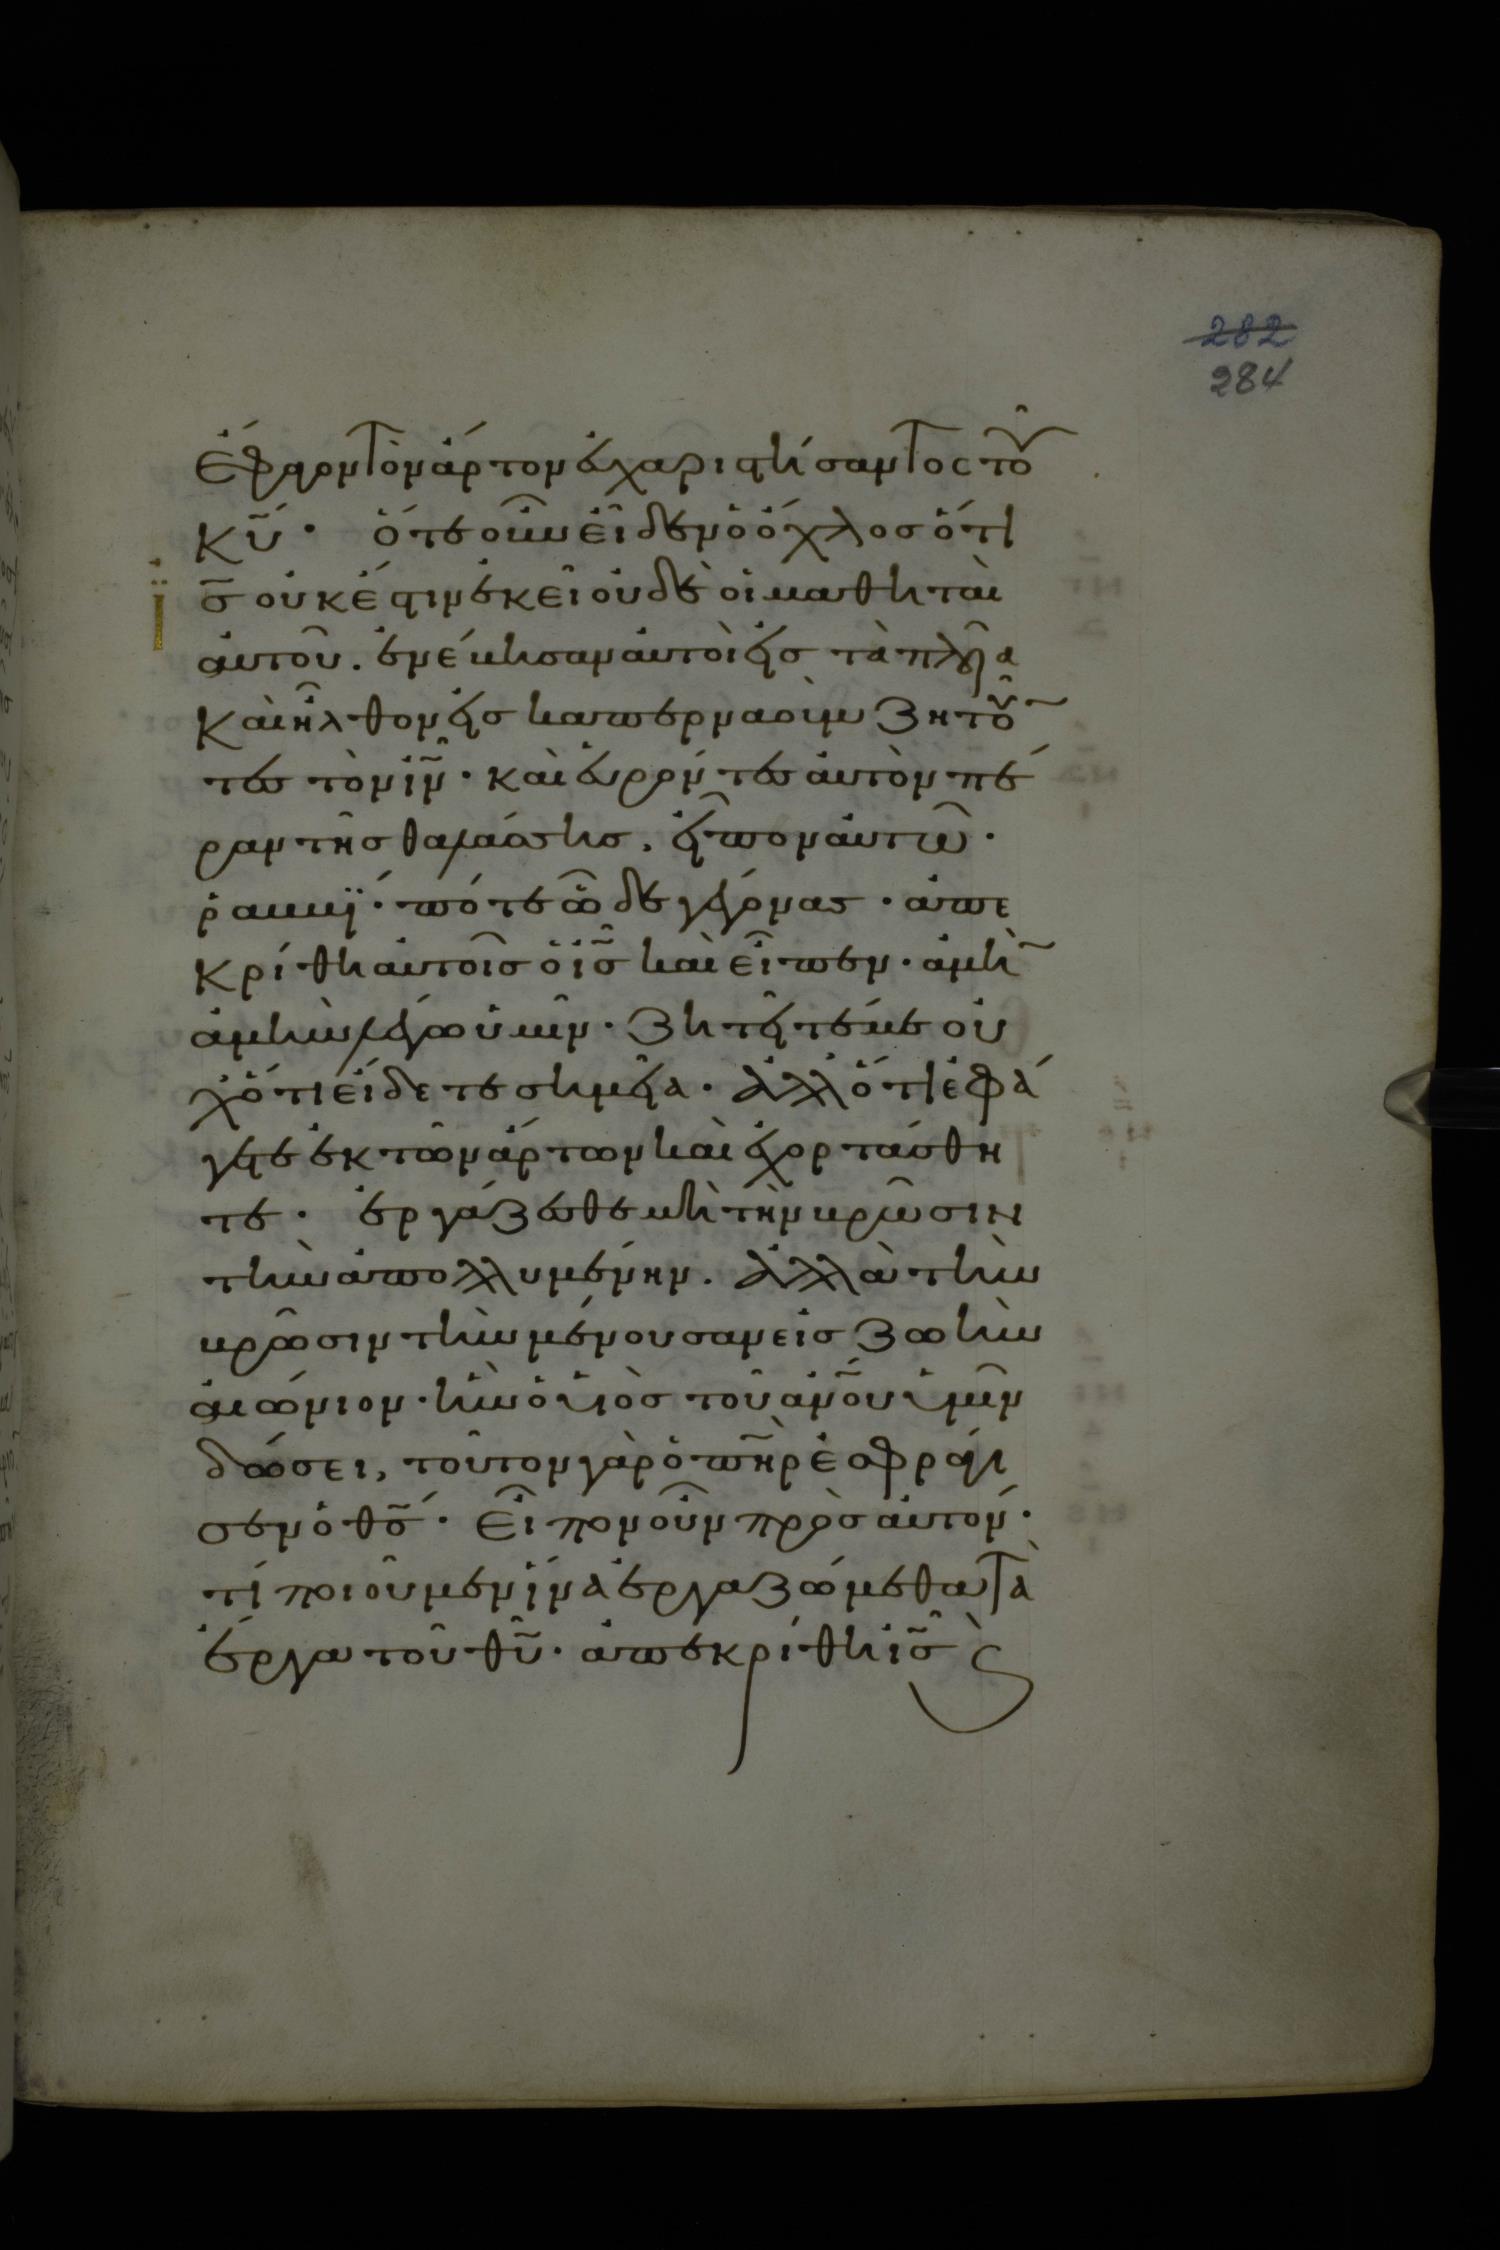 282
284
ἔφαγον τὸν ἄρτον εὐχαριστήσαντος τοῦ
κ̅υ̅· ὅτε οὖν εἶδεν ὁ ὄχλος ὅτι
ι̅ς̅ οὐκ ἔστιν ἐκεῖ οὐδὲ οἱ μαθηταὶ
αὐτοῦ. ἐνέβησαν αὐτοὶ εἰς τὰ πλοῖα
καὶ ἦλθον εἰς καπερναοὺμ ζητοῦν
τες τὸν ι̅ν̅· καὶ εὑρόντες αὐτὸν πέ
ραν τῆς θαλάσσης, εἶπον αὐτῶ·
ῥαββί· πότε ὧδε γέγονας· ἀπε
κρίθη αὐτοῖς ὁ ι̅ς̅ καὶ εἶπεν· ἀμὴν
ἀμὴν λέγω ὑμῖν· ζητεῖτέ με οὐ
χ ὅτι εἴδετε σημεῖα· ἀλλ ὅτι ἐφά
γετε ἐκ τῶν ἄρτων καὶ ἐχορτάσθη
τε· ἐργάζεσθε μὴ τὴν βρῶσιν
τὴν ἀπολλυμένην. ἀλλὰ τὴν
βρῶσιν τὴν μένουσαν εἰς ζωὴν
αἰώνιον· ἣν ὁ υἱὸς τοῦ α̅ν̅ο̅υ̅ ὑμῖν
δώσει, τοῦτον γὰρ ὁ π̅η̅ρ̅ ἐσφράγι
σεν ὁ θ̅ς̅· εἶπον οὖν πρὸς αὐτόν·
τί ποιοῦμεν ἵνα ἐργαζώμεθα τὰ
ἔργα τοῦ θ̅υ̅· ἀπεκρίθη ι̅ς̅ ϗ